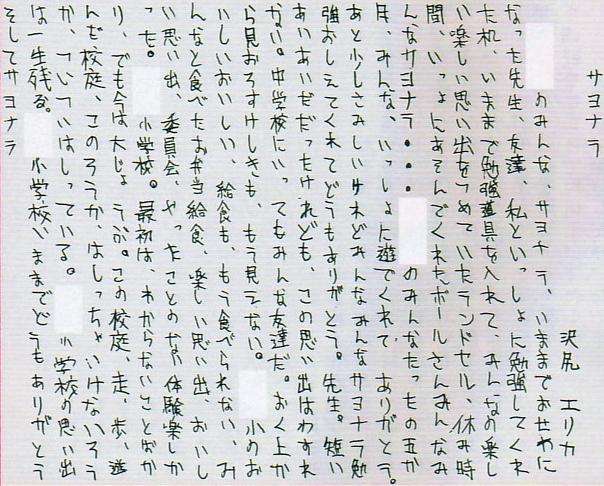 サヨナラ
沢尻　エリカ
のみんな、サヨナラ、いままでおせわに
なった先生、友達、私といっしょに勉強してくれ
た机、いままで勉強道具を入れて、みんなの楽し
い楽しい思い出をつめていたランドセル、休み時
間、いっしょにあそんでくれたボールさんみんなみ
んなサヨナラ・・・
のみんなたった五か
月、みんな、いっしょに遊でくれて、ありがとう。
あと少しさみしいけれどみんなみんなサヨナラ勉
強おしえてくれてどうもありがとう。先生。短い
あいあいだだったけれども、この思い出はわすれ
ない。中学校にいってもみんな友達だ。おく上か
ら見おろすけしきも、もう見えない。
小のお
いしいおいしい、給食も、もう食べられない、み
んなと食べたお弁当給食、楽しい思い出、おいし
い思い出、委員会、やったことのない体験楽しか
った。
小学校。最初は、わからないことばか
り、でも今は大じょうぶ。この校庭、走、歩、遊
んだ校庭、このろうか、はしっちゃいけないろう
か、ついついはしっている。
小学校の思い出
は一生残る。
小学校いままでどうもありがとう
そしてサヨナラ